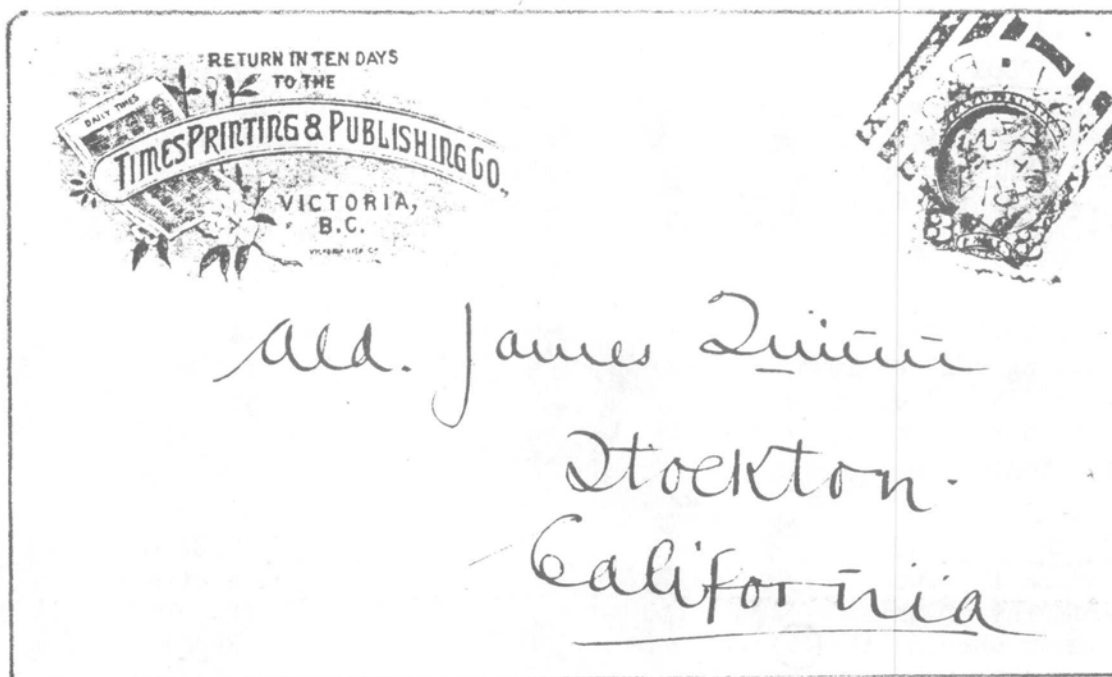 RETURN IN TEN DAYS
TO THE
DAILY TIMES
TIMES PRINTING & PUBLISHING CO.,
VICTORIA,
B.C.
3
Ald. James Quinn
Stockton.
California